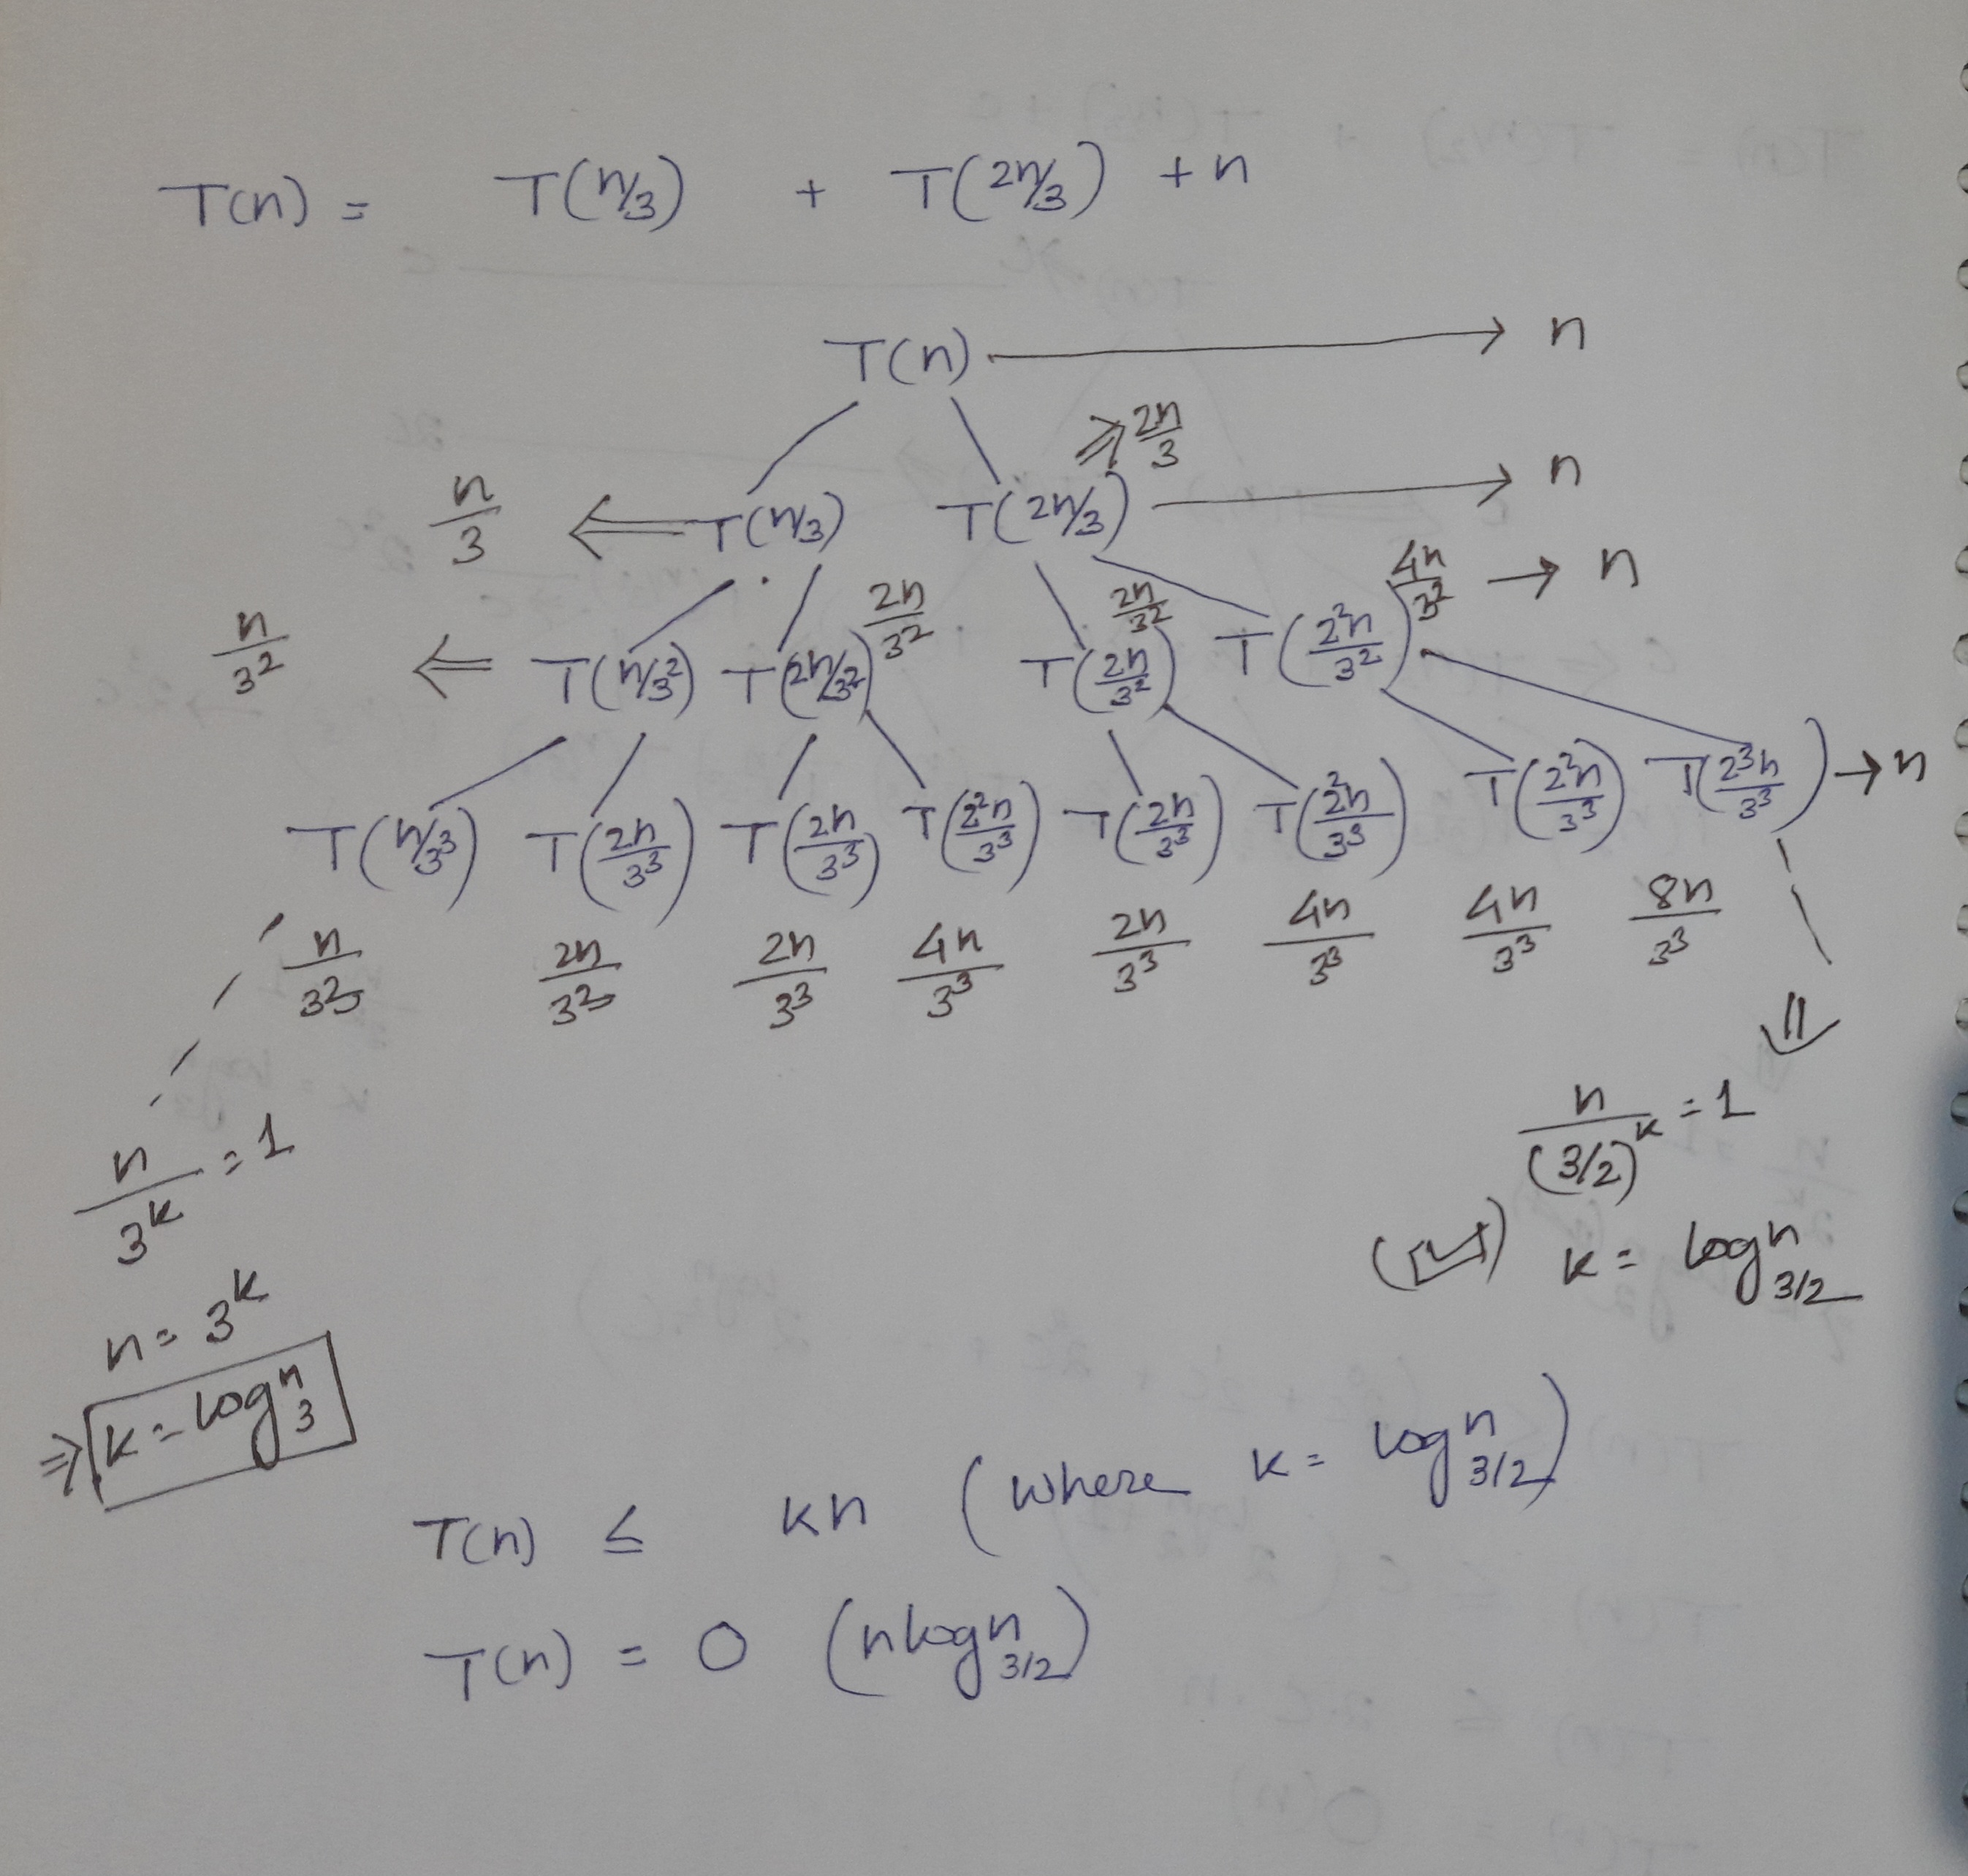 T(n) = T(n/3) + T(2n/3) + n
T(n) → n
n/3 ⇐ T(n/3) T(2n/3) ⇒ 2n/3 → n
n/3² ⇐ T(n/3²) T(2n/3²) 2n/3² T(2n/3²) 2n/3² T(2²n/3²) 4n/3² → n
T(n/3³) T(2n/3³) T(2n/3³) T(2²n/3³) T(2n/3³) T(2²n/3³) T(2²n/3³) T(2³n/3³) → n
n/3³ 2n/3³ 2n/3³ 4n/3³ 2n/3³ 4n/3³ 4n/3³ 8n/3³
n/3^k = 1
n = 3^k
⇒ k = log₃ⁿ
⇓
n/(3/2)^k = 1
(✓) k = logⁿ 3/2
T(n) ≤ kn (where k = logⁿ 3/2)
T(n) = O (nlogⁿ 3/2)